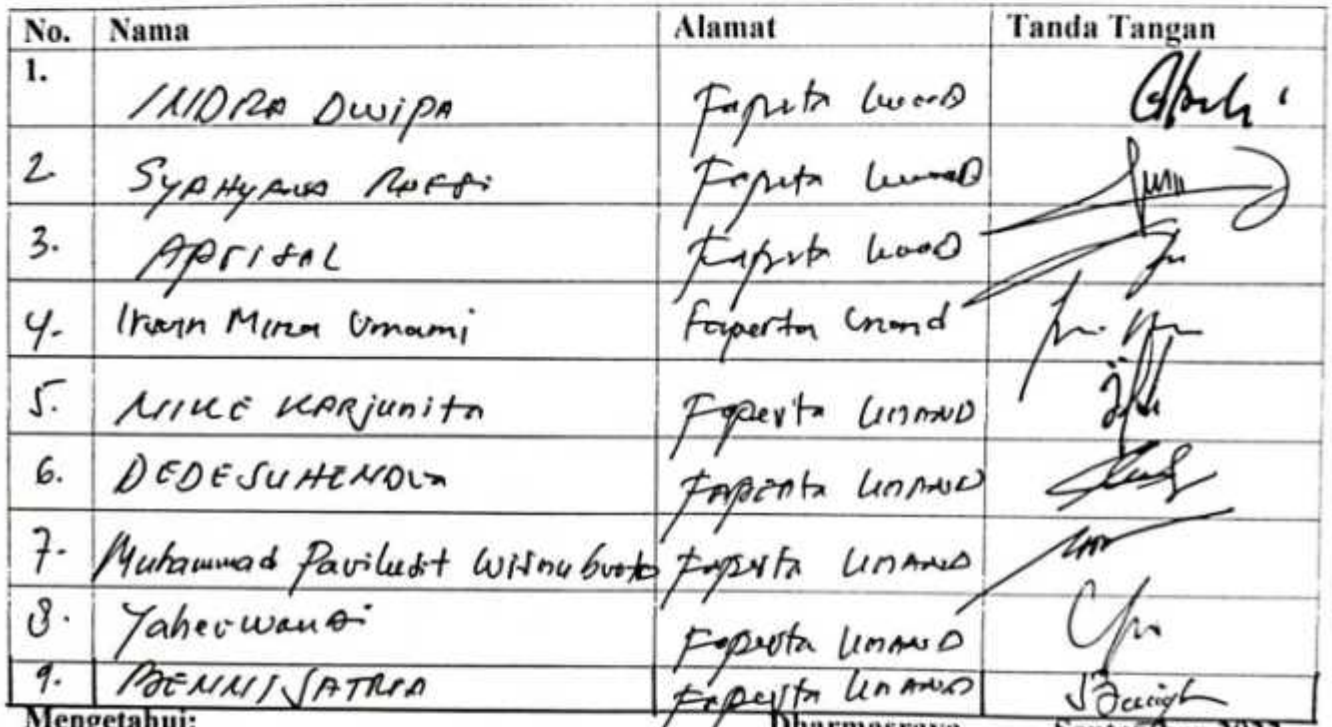 No. Nama Alamat Tanda Tangan
1. INDRA DWIPA Faperta Unand
2. SYAHYANA RAFFI Faperta Unand
3. APRISAL Faperta Unand
4. Irwan Mirza Umami Faperta Unand
5. MIKE KARJunita Faperta UNAND
6. DEDE SUHENDRA Faperta UNAND
7. Muhammad Wisnubroto Faperta UNAND
8. Yaherwandi Faperta UNAND
9. BENNI SATRIA Faperta UNAND
Mengetahui: Dharmasraya